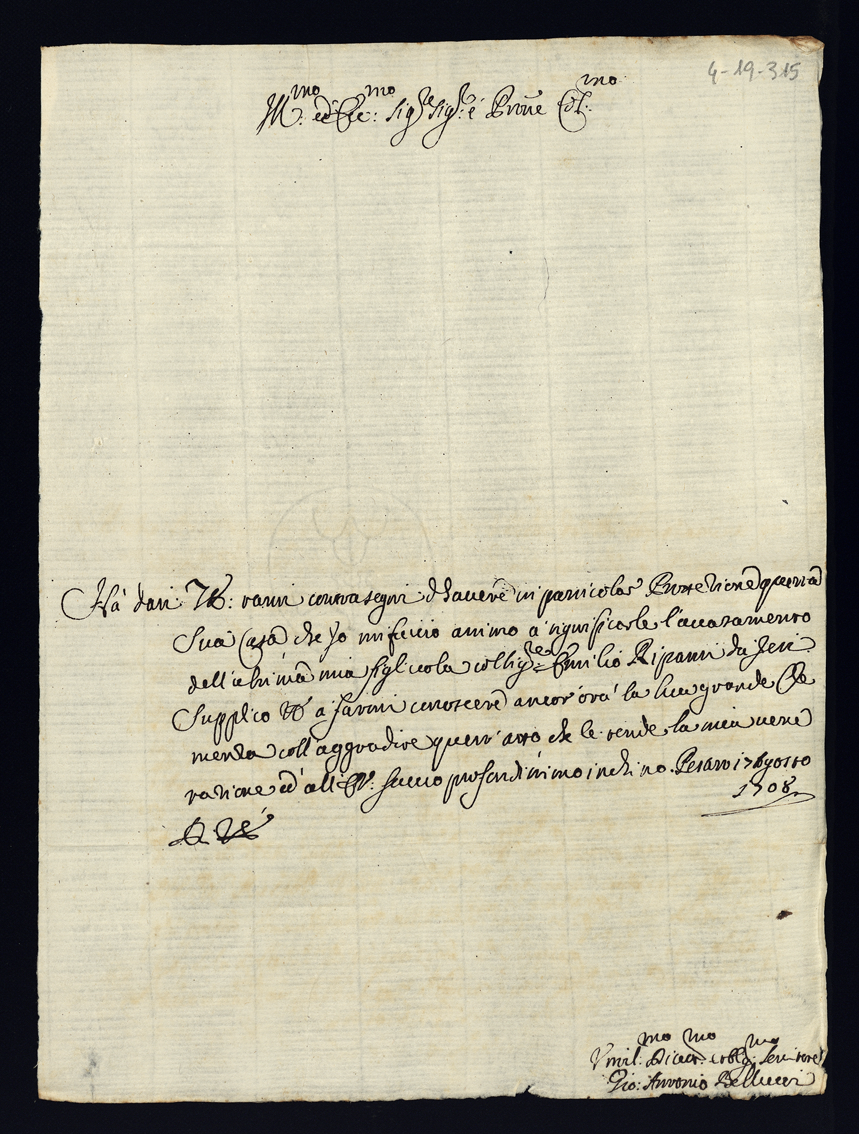 4-19-315
Ill.mo ed Ecc.mo Sig.re Sig.re è Prone Col.mo
Hà dati V.E. tanti contrasegni d'havere in particolar Protezione questa
Sua Casa che Io mi faccio animo a significarle l'accasamento
dell'ultima mia figliuola col Sig.re Emilio Ripanti da Jesi
Supplico V.E. a farmi conoscere ancor'ora la sua grande Cle
menza coll'aggradire quest'atto che le rende la mia vene
razione ed all'E.V. faccio profondissimo inchino. Pesaro 17 Agosto
1708
D. V.E.
Umil.mo Divot.mo et obblig.mo Servitore
Gio: Antonio Bellucci